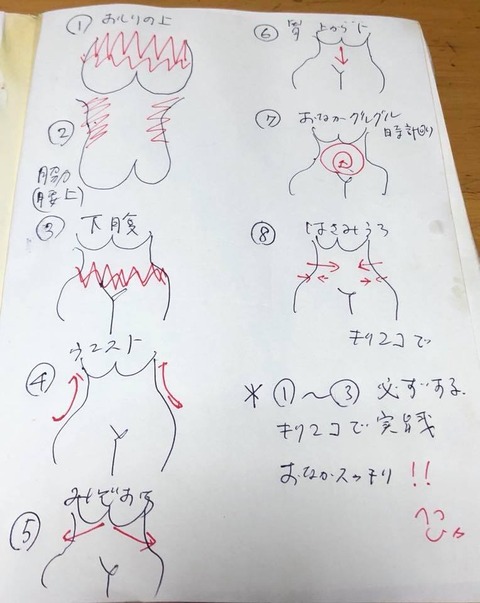 ① おしりの上
②
脇
(腰上)
③ 下腹
④ ウエスト
⑤ みぞおち
⑥ 胃 上から下
⑦ おなかグルグル
時計回り
⑧ はさみうち
キリ2コで
* ①〜③ 必ずする.
キリ2コで実践
おなかスッキリ !!